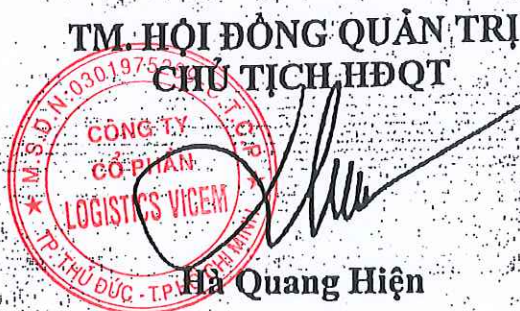 TM. HỘI ĐỒNG QUẢN TRỊ
CHỦ TỊCH HĐQT
M.S.D.N: 0301975 C.T.C.P
CÔNG TY
CỔ PHẦN
LOGISTICS VICEM
TP. THỦ ĐỨC - T.P. HỒ CHÍ MINH
Hà Quang Hiện